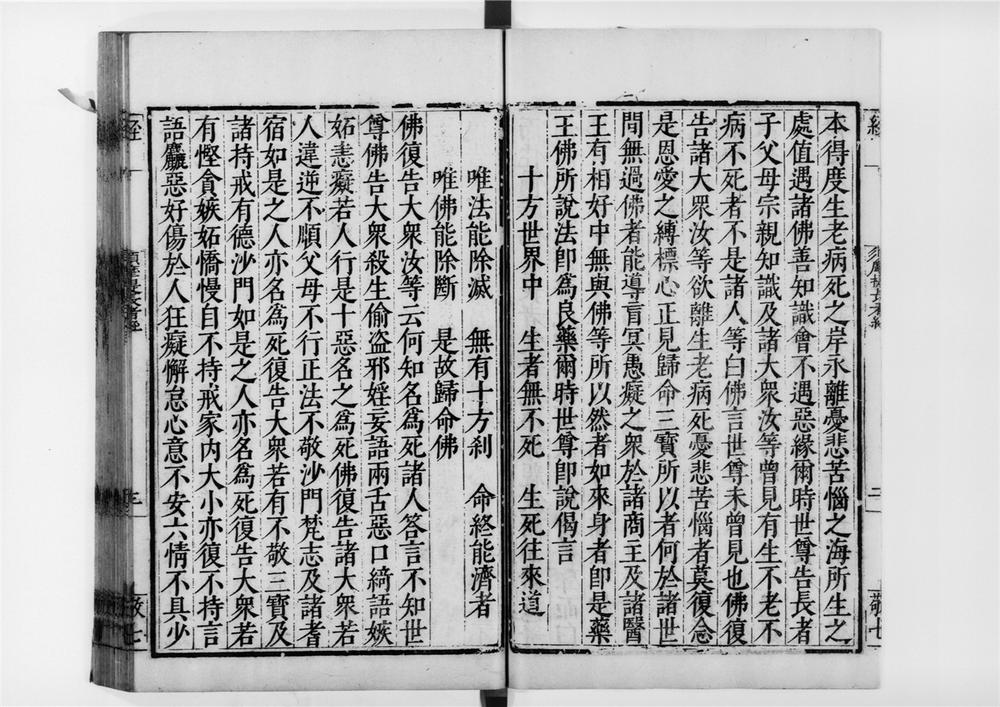 本得度生老病死之岸永離憂悲苦惱之海所生之
處值遇諸佛善知識會不遇惡緣爾時世尊告長者
子父母宗親知識及諸大衆汝等曾見有生不老不
病不死者不是諸人等白佛言世尊未曾見也佛復
告諸大衆汝等欲離生老病死憂悲苦惱者莫復念
是恩愛之縛標心正見歸命三寳所以者何於諸世
間無過佛者能導盲冥愚癡之衆於諸商主及諸醫
王有相好中無與佛等所以然者如來身者即是藥
王佛所說法即爲良藥爾時世尊即說偈言
十方世界中　生者無不死　生死往來道
唯法能除滅　無有十方刹　命終能濟者
唯佛能除斷　是故歸命佛
佛復告大衆汝等云何知名爲死諸人答言不知世
尊佛告大衆殺生偷盜邪婬妄語兩舌惡口綺語嫉
妬恚癡若人行是十惡名之爲死佛復告諸大衆若
人違逆不順父母不行正法不敬沙門梵志及諸耆
宿如是之人亦名爲死復告大衆若有不敬三寳及
諸持戒有德沙門如是之人亦名爲死復告大衆若
有慳貪嫉妬憍慢自不持戒家内大小亦復不持言
語麤惡好傷於人狂癡懈怠心意不安六情不具少
經
三
敬七